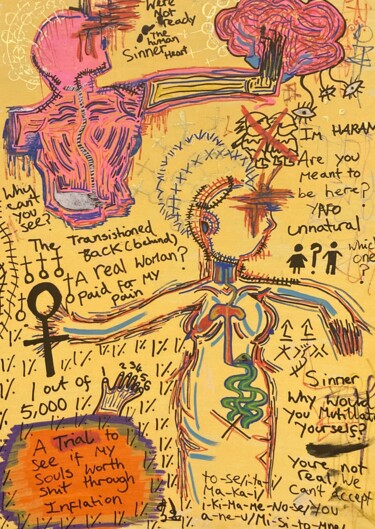 Were
Not
Ready
The human
Sinner Heart
IM HARAM
Are you
meant to
be here?
unnatural
Which
one
?
?
Why
cant
you
see?
The
Transistioned
BACK (behind)
A real Woman?
Paid for MY
pain
1 out of
5,000
1 2 3 4 5 6
A Trial to
see if MY
Souls Worth
shit through
Inflation
Sinner
Why Would
You Mutilate
Yourself?
Youre not
real We
Cant Accept
You
to-se/i-ta-i
Ma-Ka-i/
i-Ki-Ma-Me-No-Se/